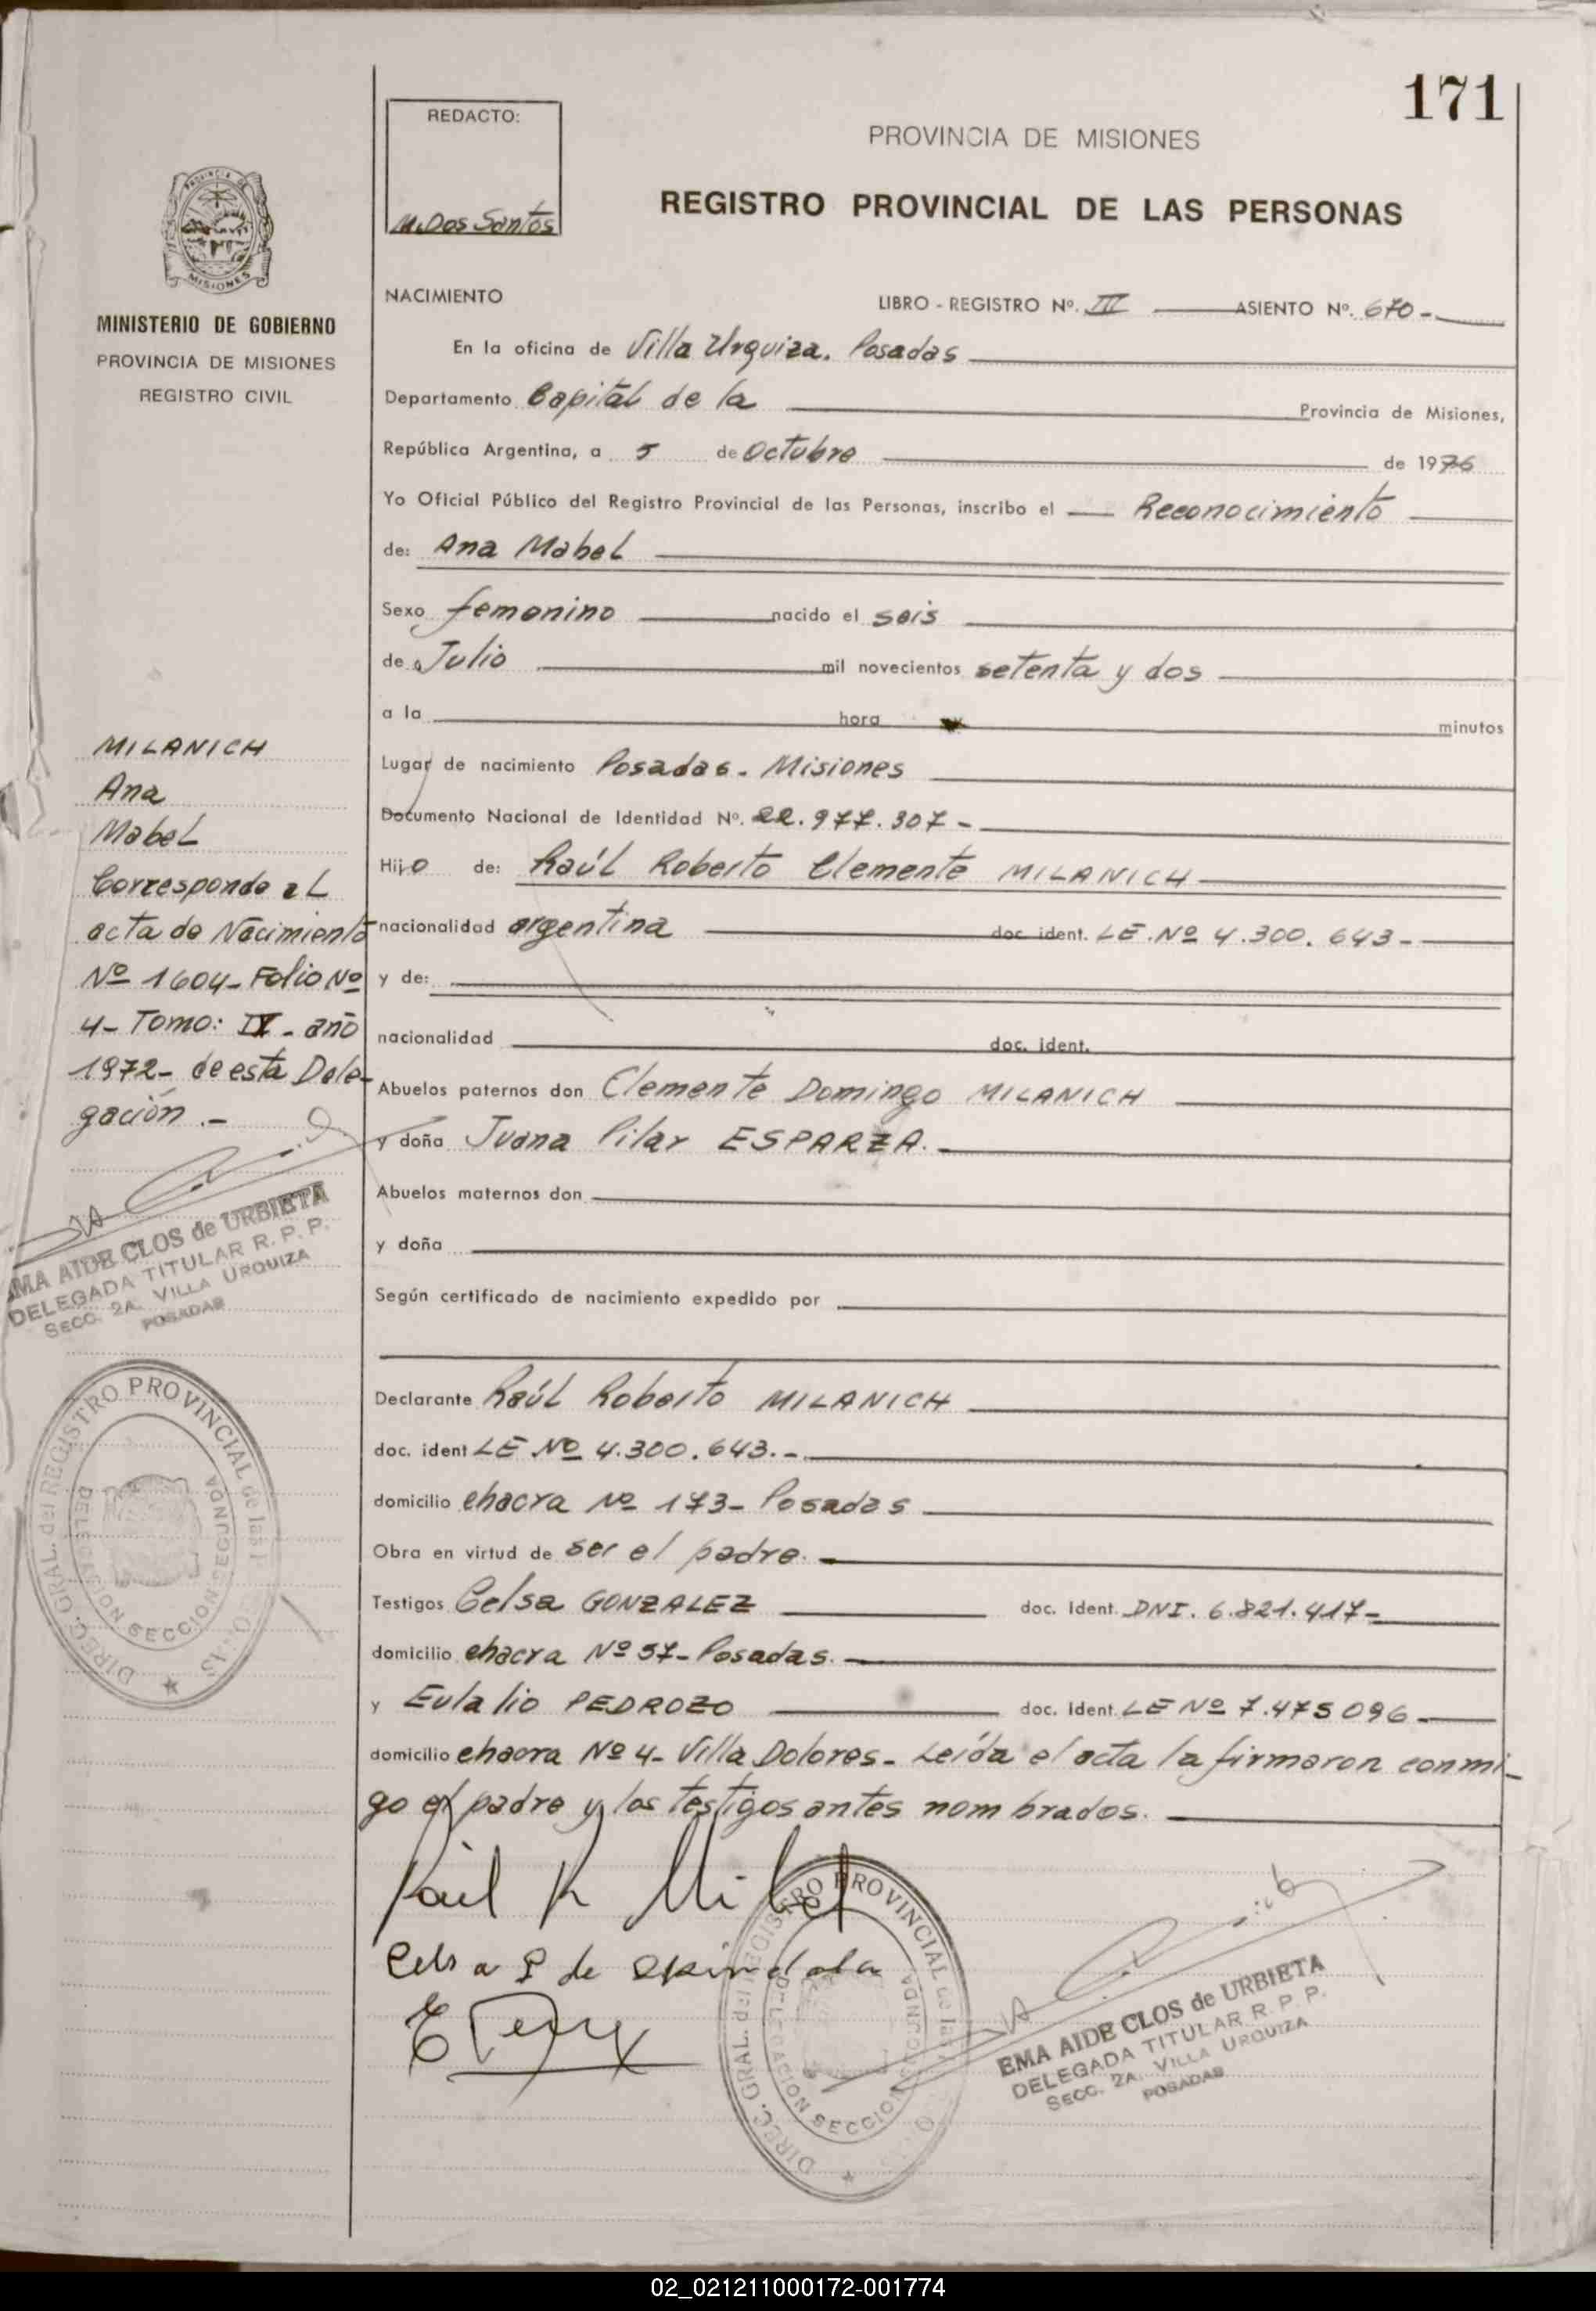 171
REDACTO:
M. Dos Santos
PROVINCIA DE MISIONES
REGISTRO PROVINCIAL DE LAS PERSONAS
PROVINCIA DE
MISIONES
MINISTERIO DE GOBIERNO
PROVINCIA DE MISIONES
REGISTRO CIVIL
NACIMIENTO LIBRO - REGISTRO Nº. III ASIENTO Nº. 670 -
En la oficina de Villa Urquiza. Posadas
Departamento Capital de la Provincia de Misiones,
República Argentina, a 5 de Octubre de 1976
Yo Oficial Público del Registro Provincial de las Personas, inscribo el Reconocimiento
de: Ana Mabel
Sexo femenino nacido el seis
de Julio mil novecientos setenta y dos
a la hora minutos
Lugar de nacimiento Posadas - Misiones
Documento Nacional de Identidad Nº. 22.977.307 -
Hijo de: Raúl Roberto Clemente MILANICH
nacionalidad argentina doc. ident. LE. Nº 4.300.643 -
y de:
nacionalidad doc. ident.
Abuelos paternos don Clemente Domingo MILANICH
y doña Juana Pilar ESPARZA. -
Abuelos maternos don
y doña
Según certificado de nacimiento expedido por
Declarante Raúl Roberto MILANICH
doc. ident LE Nº 4.300.643. -
domicilio chacra Nº 173 - Posadas
Obra en virtud de ser el padre. -
Testigos Celsa GONZALEZ doc. Ident. DNI. 6.821.417 -
domicilio chacra Nº 57 - Posadas. -
y Eulalio PEDROZO doc. Ident. LE Nº 7.475 096 -
domicilio chacra Nº 4 - Villa Dolores - Leída el acta la firmaron conmi-
go el padre y los testigos antes nombrados.
MILANICH
Ana
Mabel
Corresponde al
acta de Nacimiento
Nº 1604 - Folio Nº
4 - Tomo: IV - año
1972 - de esta Dele-
gación. -
EMA AIDE CLOS de URBIETA
DELEGADA TITULAR R. P. P.
SECC. 2A. VILLA URQUIZA
POSADAS
DIREC. GRAL. del REGISTRO PROVINCIAL de las
DELEGACION SECCION SEGUNDA
Raúl R
Celsa de
DIREC. GRAL. del REGISTRO PROVINCIAL de las
DELEGACION SECCION SEGUNDA
EMA AIDE CLOS de URBIETA
DELEGADA TITULAR R. P. P.
SECC. 2A. VILLA URQUIZA
POSADAS
02_021211000172-001774